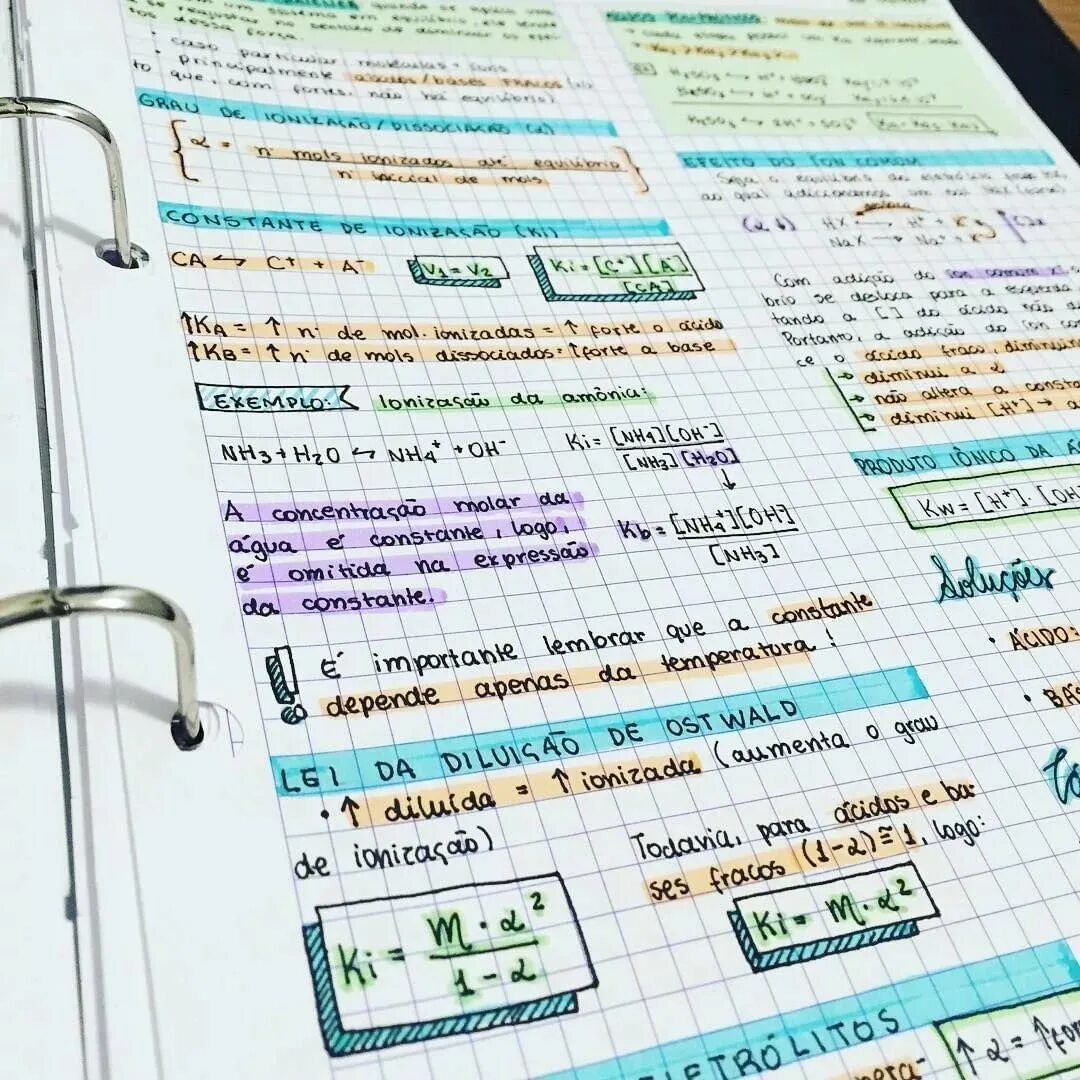 em um sistema em equilíbrio, ele tende
a se reajustar no sentido de diminuir os efei-
tos dessa força
• caso particular moléculas - íons
• principalmente ácidos/bases FRACOS
to que, com fortes, não há equilíbrio)
GRAU DE IONIZAÇÃO/DISSOCIAÇÃO (α)
α = nº mols ionizados até equilíbrio
nº inicial de mols
CONSTANTE DE IONIZAÇÃO (Ki)
CA ⇆ C⁺ + A⁻
V1 = V2
Ki = [C⁺][A⁻]
[CA]
↑KA = ↑ nº de mol. ionizadas = ↑ forte o ácido
↑KB = ↑ nº de mols dissociados = ↑forte a base
EXEMPLO: Ionização da amônia:
NH3 + H2O ⇆ NH4⁺ + OH⁻
Ki = [NH4][OH⁻]
[NH3][H2O]
↓
A concentração molar da
água é constante, logo,
é omitida na expressão
da constante.
Kb = [NH4⁺][OH⁻]
[NH3]
É importante lembrar que a constante
depende apenas da temperatura!
LEI DA DILUIÇÃO DE OSTWALD
• ↑ diluída = ↑ ionizada (aumenta o grau
de ionização)
Ki = m · α²
1 - α
Todavia, para ácidos e ba-
ses fracos (1-α) ≅ 1, logo:
Ki = m · α²
ELETRÓLITOS
↑ α = ↑ for
EFEITO DO ÍON COMUM
ao qual adicionamos um sal
HX ⇆ H⁺ + X⁻
NaX → Na⁺ + X⁻
Com adição do íon comum x⁻
brio se desloca para a esquerda
tando a [ ] do ácido não
Portanto, a adição do íon com
ce o ácido fraco, diminuin
→ diminui a α
→ não altera a consta
→ diminui [H⁺] → a
PRODUTO IÔNICO DA Á
Kw = [H⁺] · [OH
Soluções
• ÁCIDO:
• BÁS